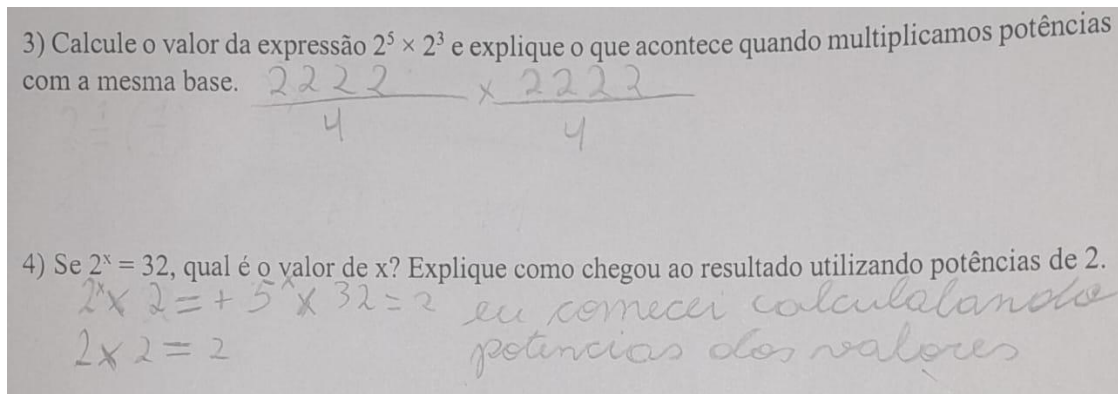 3) Calcule o valor da expressão 2⁵ × 2³ e explique o que acontece quando multiplicamos potências
com a mesma base. 2222 x 2222
4 4
4) Se 2ˣ = 32, qual é o valor de x? Explique como chegou ao resultado utilizando potências de 2.
2ˣx 2 = + 5ˣ x 32 = 2 eu comecei calculalando
2x2 = 2 potincias dos valores